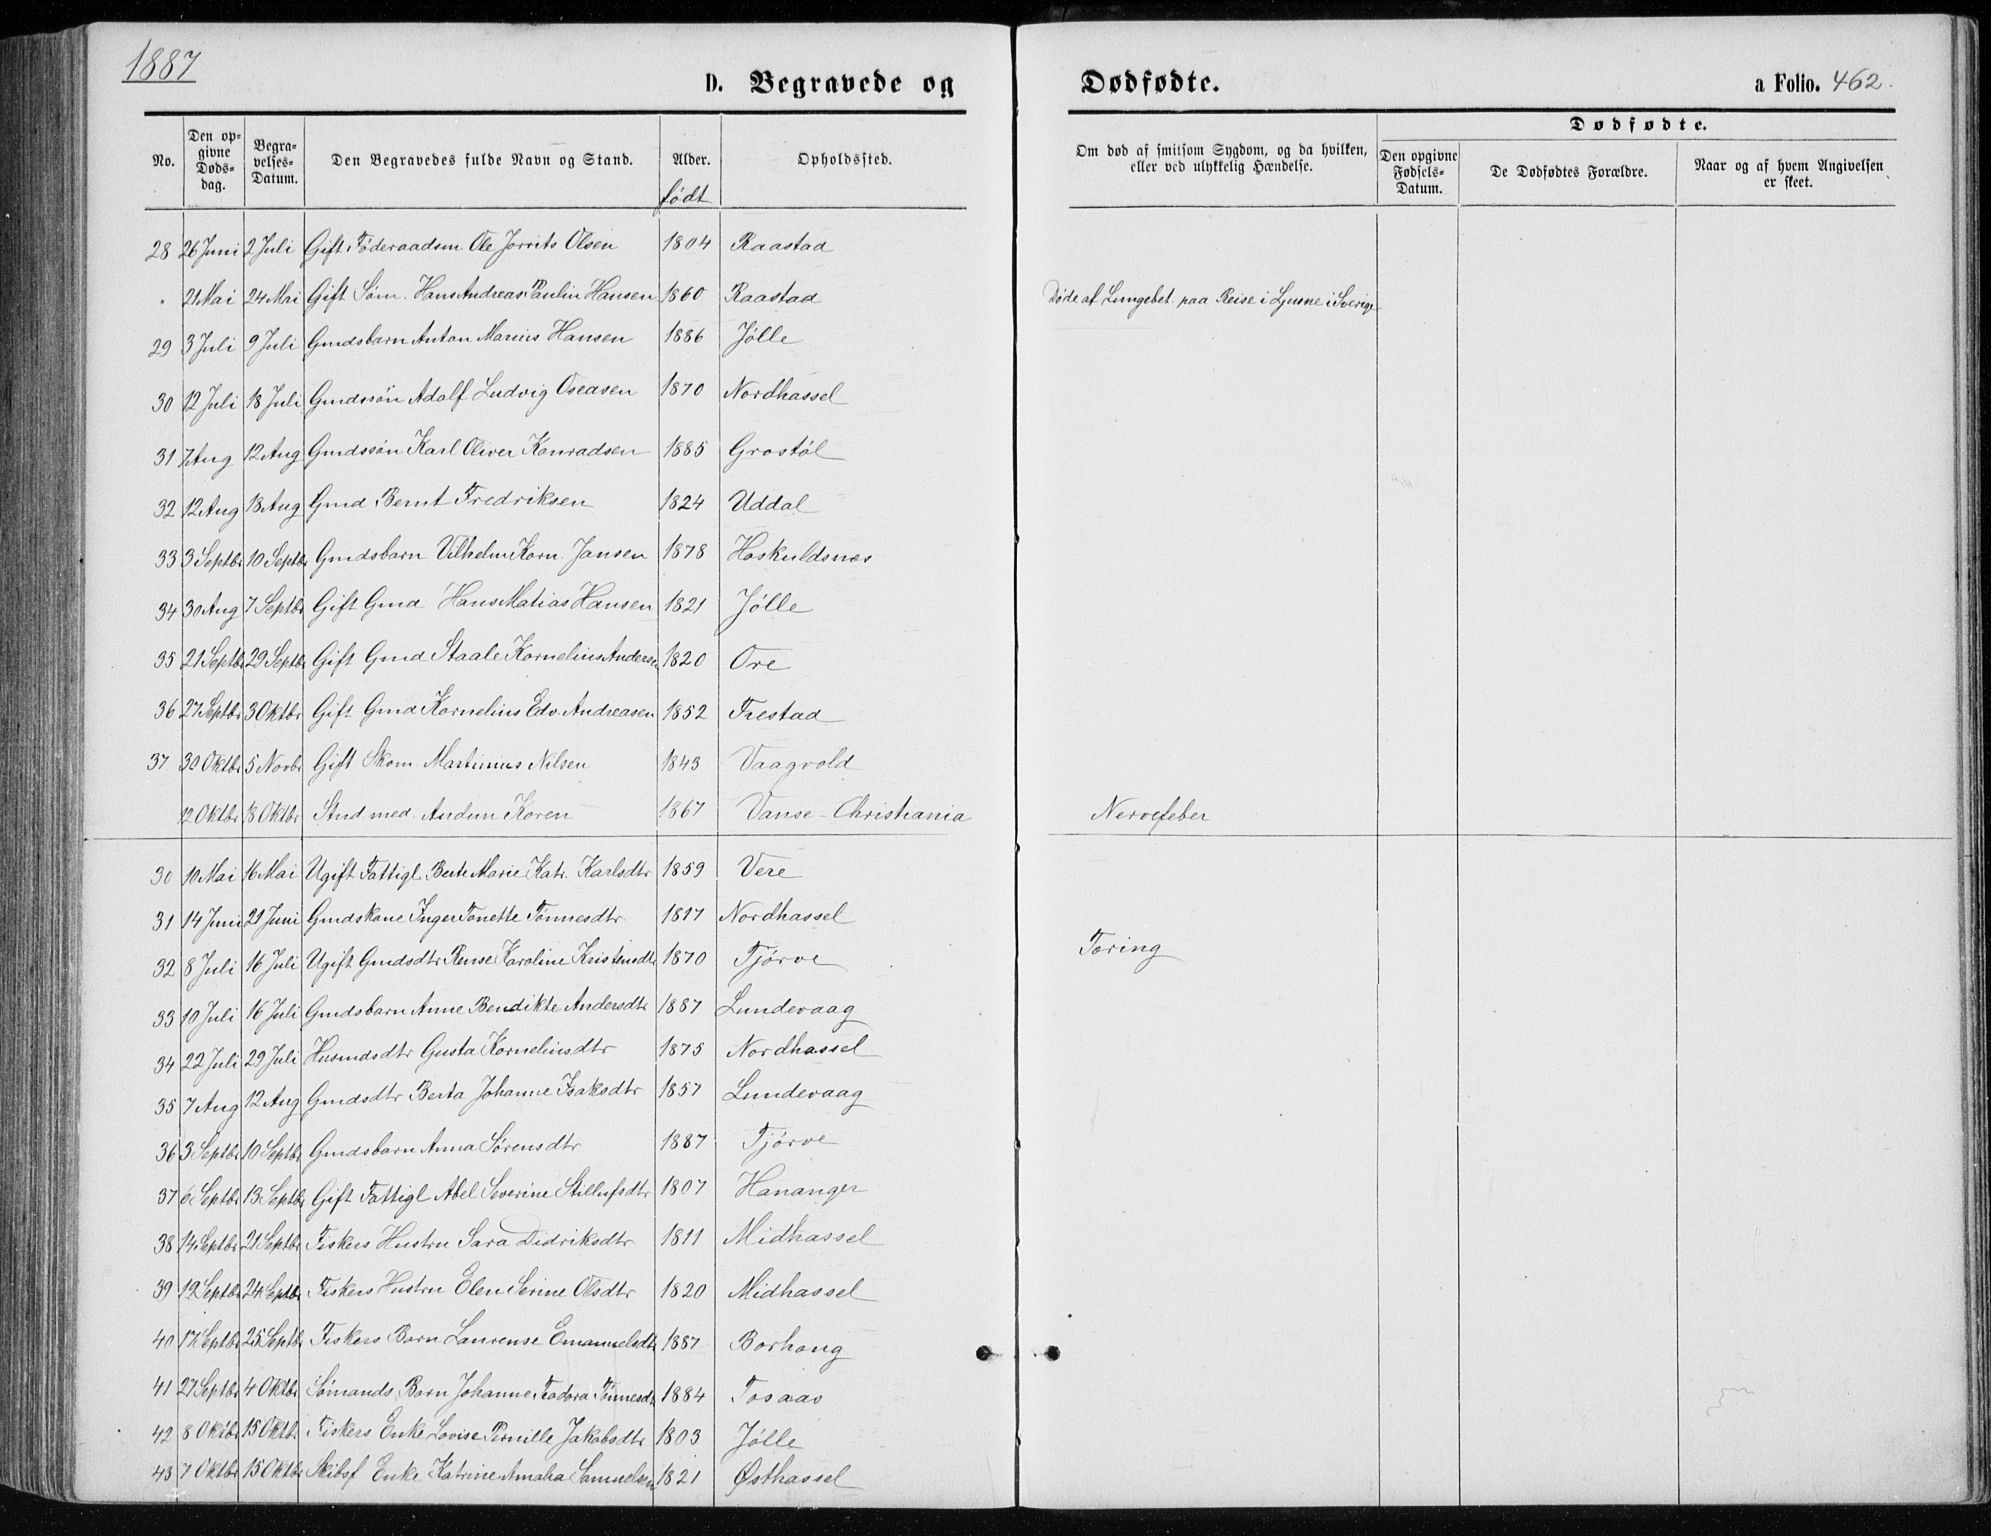 1887
D. Begravede og Dødfødte. a Folio. 462.
No. Den opgivne Dødsdag. Begravelses-Datum. Den Begravedes fulde Navn og Stand. Alder. født Opholdssted. Om død af smitsom Sygdom, og da hvilken, eller ved ulykkelig Hændelse. Dødfødte. Den opgivne Fødsels-Datum. De Dødfødtes Forældre. Naar og af hvem Angivelsen er skeet.
28 26 Juni 2 Juli Gift Føderaadsm Ole Jorrits Olsen 1804 Raastad
" 21 Mai 24 Mai Gift Søm. Hans Andreas Paulin Hansen 1860 Raastad Døde af Lungebet. paa Reise i Ljusne i Sverige
29 3 Juli 9 Juli Gmdsbarn Anton Marius Hansen 1886 Jølle
30 12 Juli 18 Juli Gmdssøn Adolf Ludvig Oseasen 1870 Nordhassel
31 7 Aug 12 Aug Gmdssøn Karl Oliver Konradsen 1885 Grostøl
32 12 Aug 18 Aug Gmd Bernt Fredriksen 1824 Uddal
33 3 Septbr 10 Septbr Gmdsbarn Vilhelm Korn. Jansen 1878 Hoskuldsnes
34 30 Aug 7 Septbr Gift Gmd Hans Matias Hansen 1821 Jølle
35 21 Septbr 29 Septbr Gift Gmd Staale Kornelius Andersen 1820 Ore
36 27 Septbr 3 Oktbr Gift Gmd Kornelius Edv. Andreasen 1852 Frestad
37 30 Oktbr 5 Novbr Gift Skom. Martinius Nilsen 1843 Vaagvold
12 Oktbr 18 Oktbr Stud med. Audun Koren 1867 Vanse - Christiania Nervefeber
30 10 Mai 16 Mai Ugift Fattigl Berte Marie Katr. Karlsdtr 1859 Vere
31 14 Juni 21 Juni Gmdskone Inger Tonette Tønnesdtr 1817 Nordhassel
32 8 Juli 16 Juli Ugift Gmdsdtr Rense Karoline Kristensdtr 1870 Tjørve Tæring
33 10 Juli 16 Juli Gmdsbarn Anne Bendikte Andersdtr 1887 Lundevaag
34 22 Juli 29 Juli Husmdsdtr Gusta Korneliusdtr 1875 Nordhassel
35 7 Aug 12 Aug Gmdsdtr Berta Johanne Isaksdtr 1857 Lundevaag
36 3 Septbr 10 Septbr Gmdsbarn Anna Sørensdtr 1887 Tjørve
37 6 Septbr 13 Septbr Gift Fattigl Abel Severine Stillufsdtr 1807 Hananger
38 14 Septbr 21 Septbr Fiskers Hustru Sara Didriksdtr 1811 Midhassel
39 19 Septbr 24 Septbr Fiskers Hustru Elen Serine Olsdtr 1820 Midhassel
40 17 Septbr 25 Septbr Fiskers Barn Laurense Emanuelsdtr 1887 Borhoug
41 27 Septbr 4 Oktbr Sømands Barn Johanne Teodora Tønnesdtr 1884 Tosaas
42 8 Oktbr 15 Oktb. Fiskers Enke Lovise Pernille Jakobsdtr 1803 Jølle
43 7 Oktbr 15 Oktbr Skibsf Enke Katrine Amalia Samuelsen 1821 Østhassel